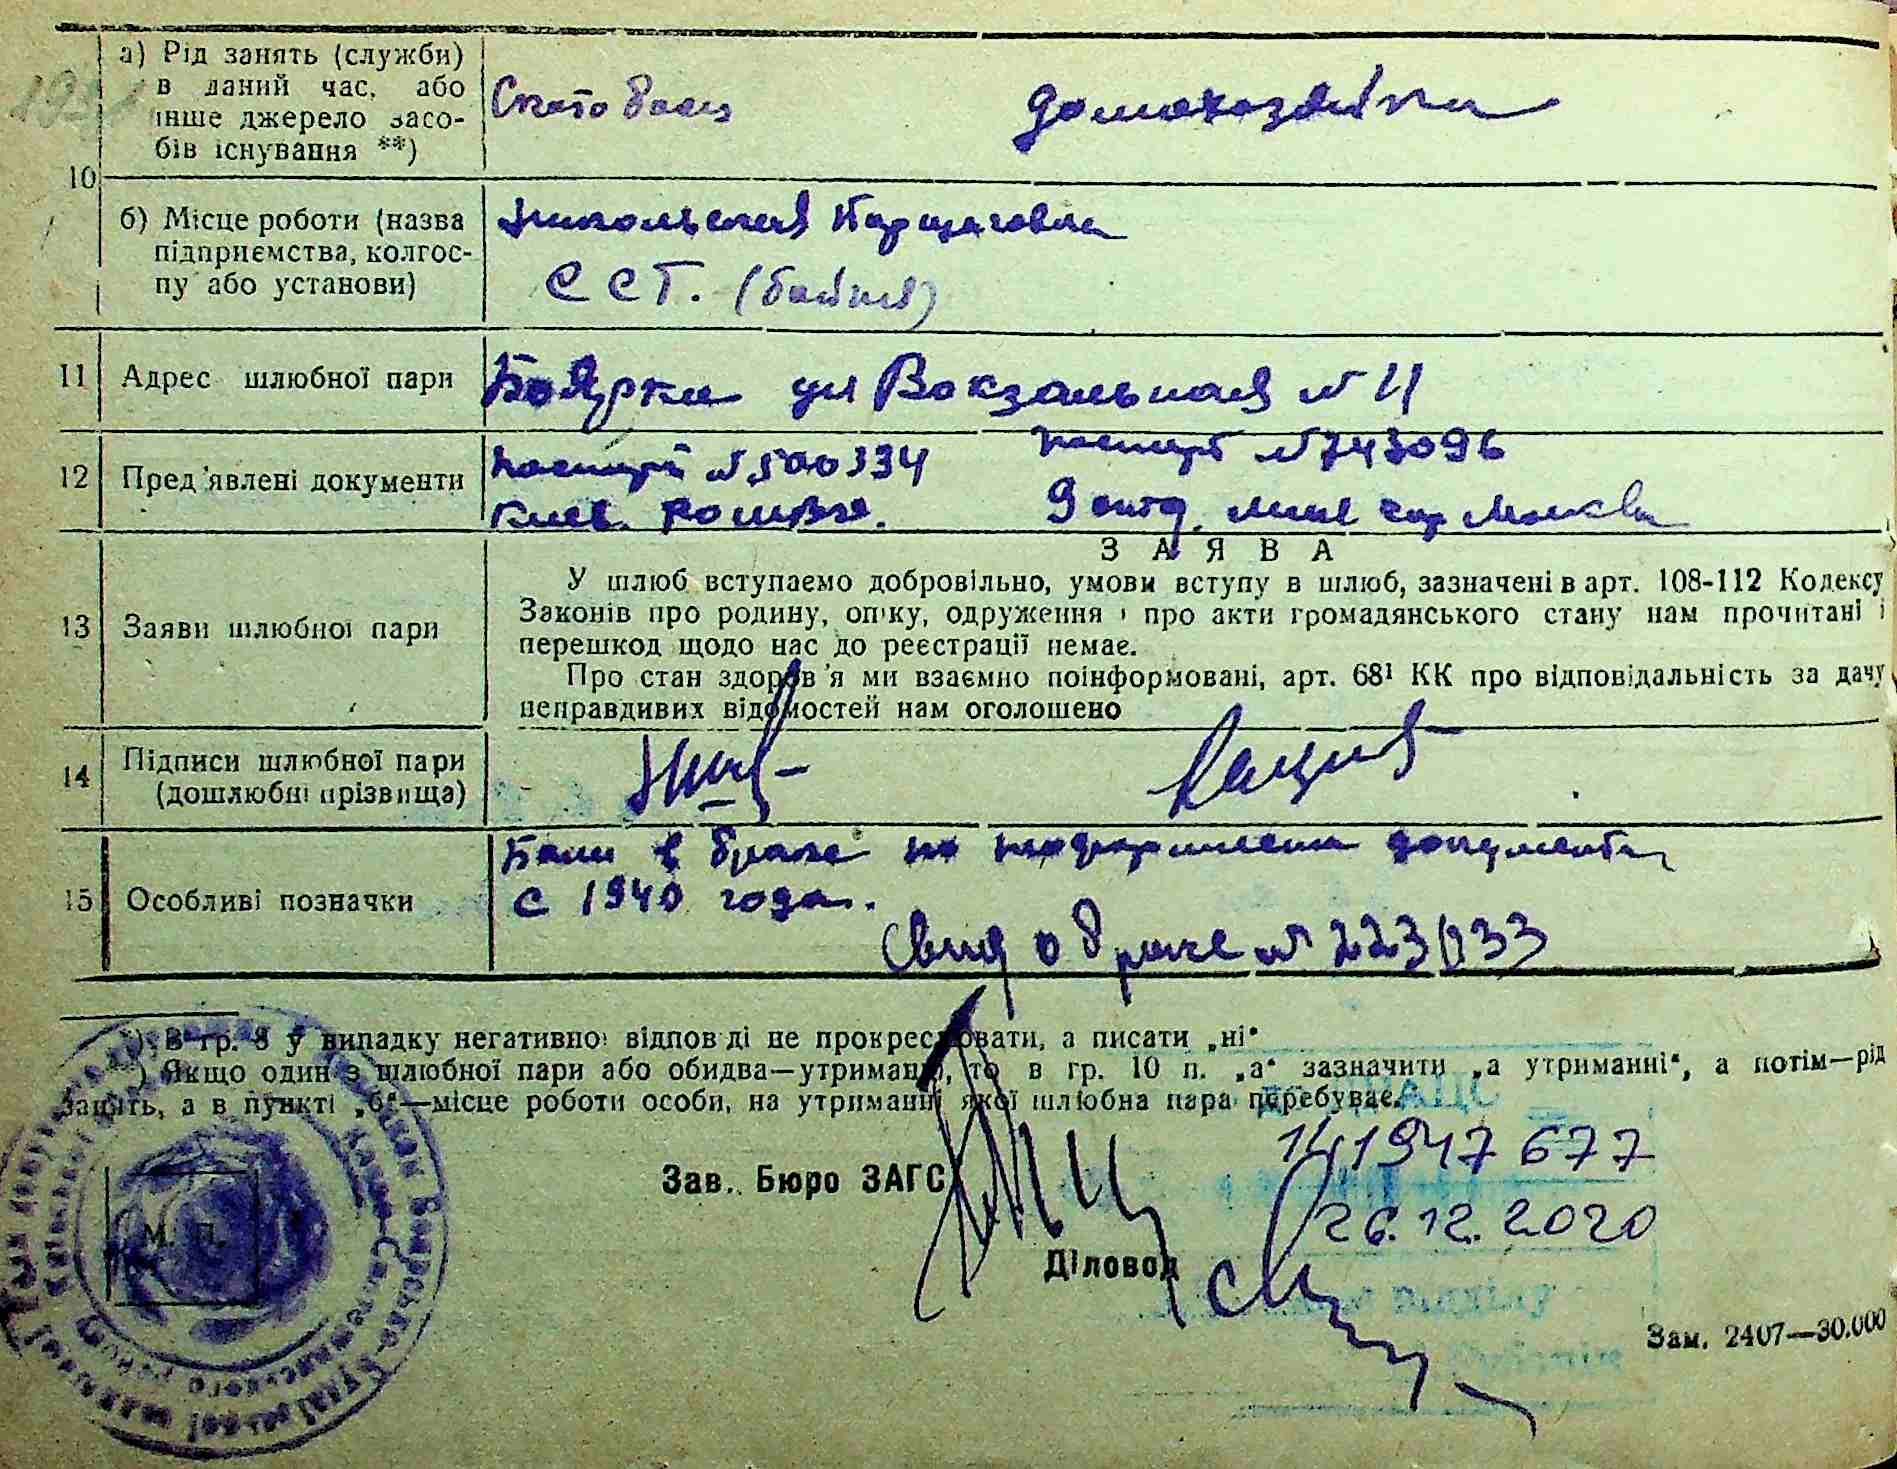 а) Рід занять (служби)
в даний час, або
інше джерело засо-
бів існування **)
Скотобоец домохозяйка
10
б) Місце роботи (назва
підприємства, колгос-
пу або установи)
Никольская Борщаговка
ССТ. (бойня)
11 Адрес шлюбної пари
Боярка ул Вокзальная № 11
12 Пред'явлені документи
паспорт № 500334 паспорт № 743096
Киев. 9 отд. мил гор Москва
З А Я В А
13 Заяви шлюбної пари
У шлюб вступаємо добровільно, умови вступу в шлюб, зазначені в арт. 108-112 Кодексу
Законів про родину, опіку, одруження і про акти громадянського стану нам прочитані і
перешкод щодо нас до реєстрації немає.
Про стан здоров'я ми взаємно поінформовані, арт. 68¹ КК про відповідальність за дачу
неправдивих відомостей нам оголошено
14 Підписи шлюбної пари
(дошлюбні прізвища)
15 Особливі позначки
в браке документа
с 1940 года.
Свид о браке №
*) В гр. 8 у випадку негативної відповіді не прокреслювати, а писати „ні“
) Якщо один з шлюбної пари або обидва—утриманці, то в гр. 10 п. „а“ зазначити „а утриманні“, а потім—рід
занять, а в пункті „б“—місце роботи особи, на утриманні якої шлюбна пара перебуває.
ДРАЦС
141947677
Зав. Бюро ЗАГС
М. П.
26.12.2020
Діловод
відділу
Зам. 2407—30.000